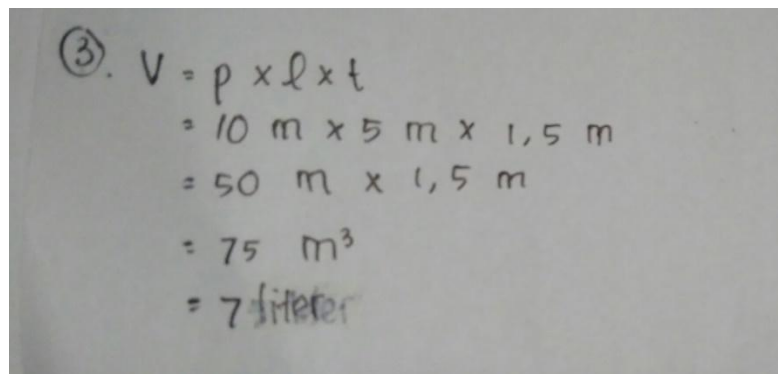 3. V = p x l x t
= 10 m x 5 m x 1,5 m
= 50 m x 1,5 m
= 75 m³
= 7